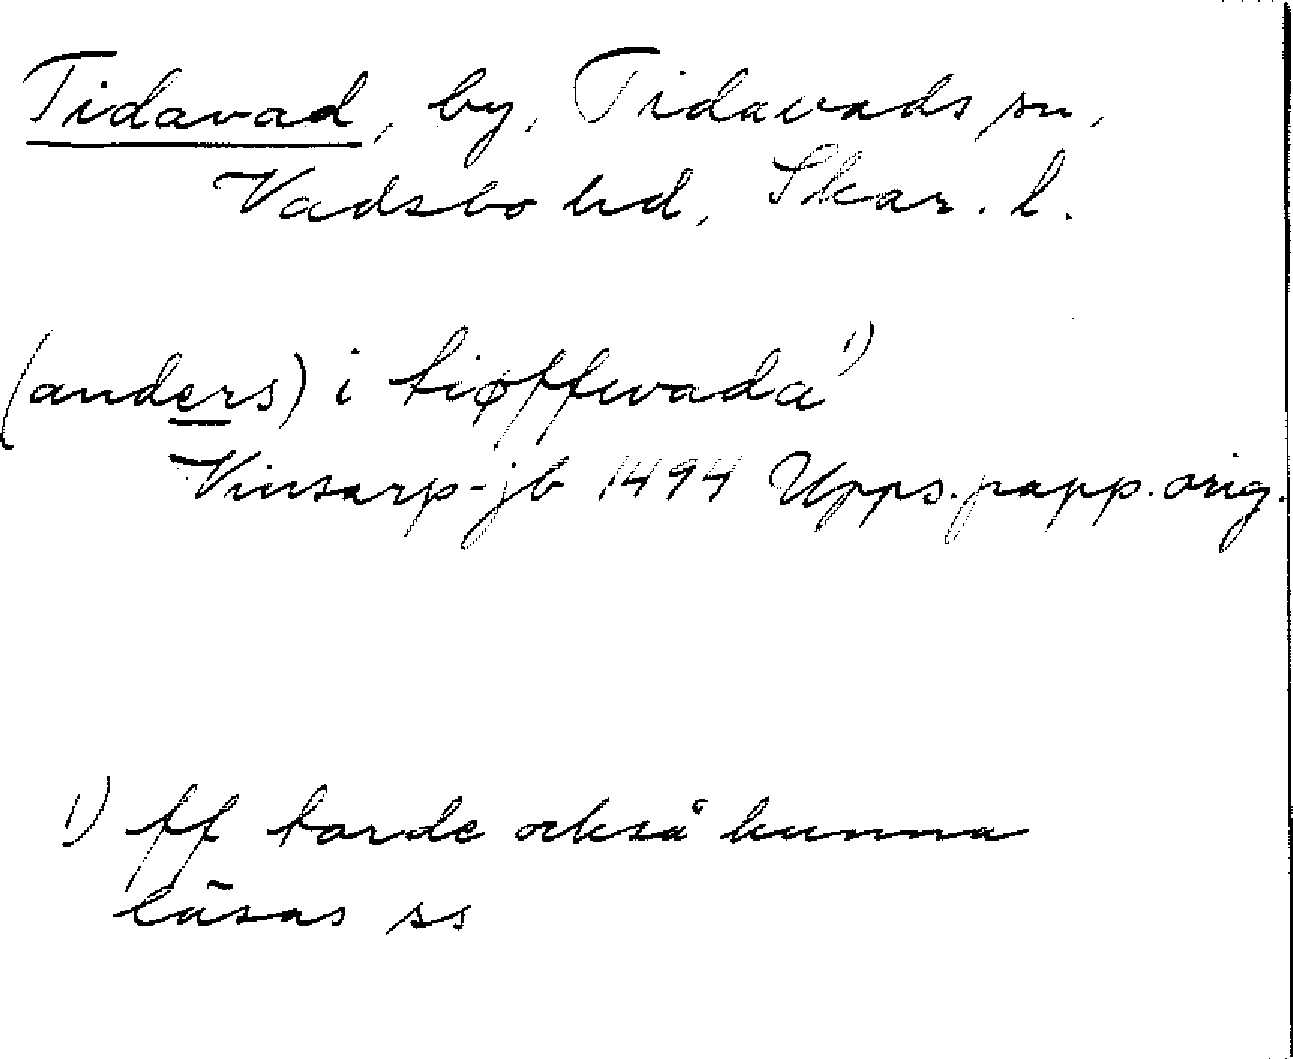 Tidavad, by, Tidavads sn,
Vadsbo hd, Skar. l.
(anders) i tiøffwada 1)
Vinsarp-jb 1494 Upps. papp. orig.
1) ff torde också kunna
läsas ss